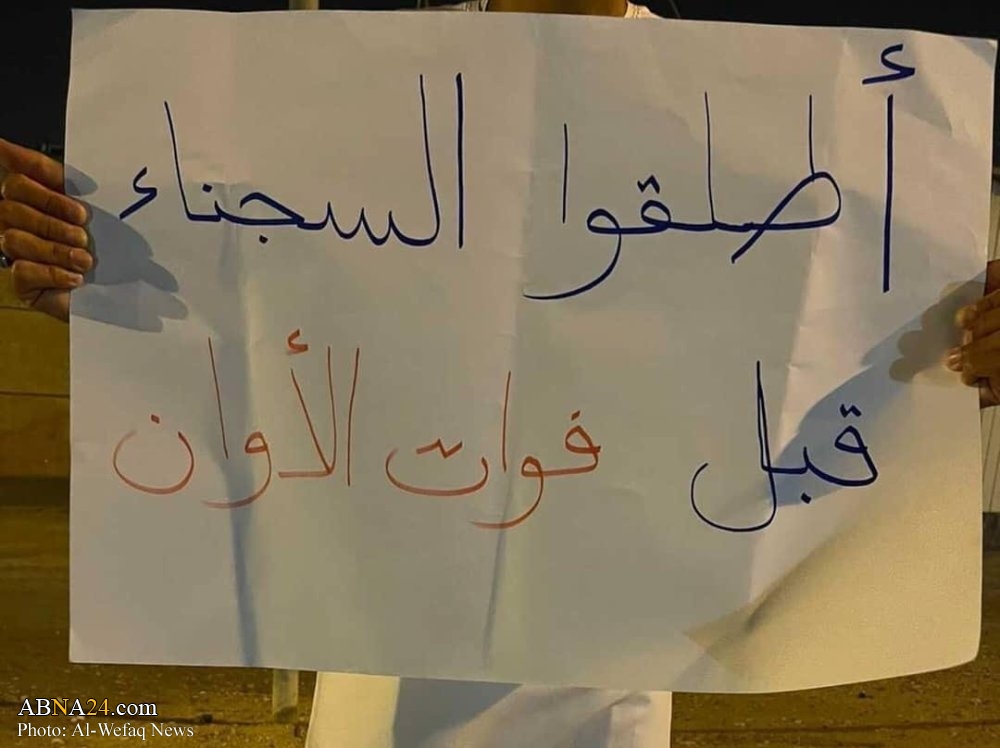 أطلقوا السجناء
قبل فوات الأوان
ABNA24.com
Photo: Al-Wefaq News